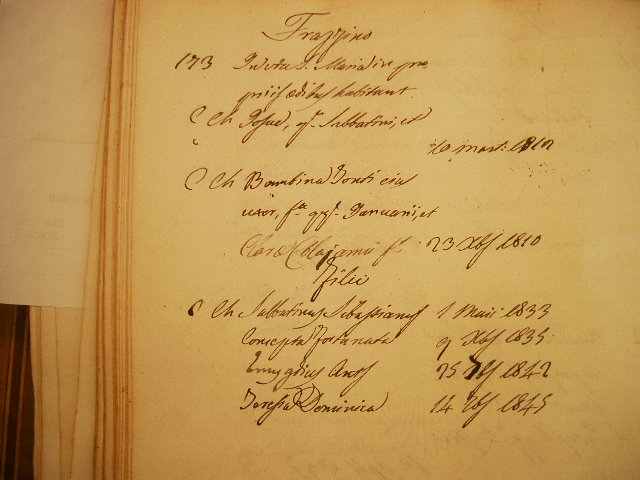 Frazzino
173 In via S. Mariæ in pro
priis ædibus habitant.
C Ch Josue, q.m Sabbatini, et
10 mart: 1810
C Ch Bambina Fonti eius
uxor, f.a q.m Januarii, et
Claræ Colajanni f. 23 Xbs 1810
Filii
C Ch Sabbatinus Sebastianus 1 Maii 1833
Concepta Fortunata 9 Xbs 1835
Emygdius Ant.s 25 7bs 1842
Teresia Dominica 14 7bs 1845